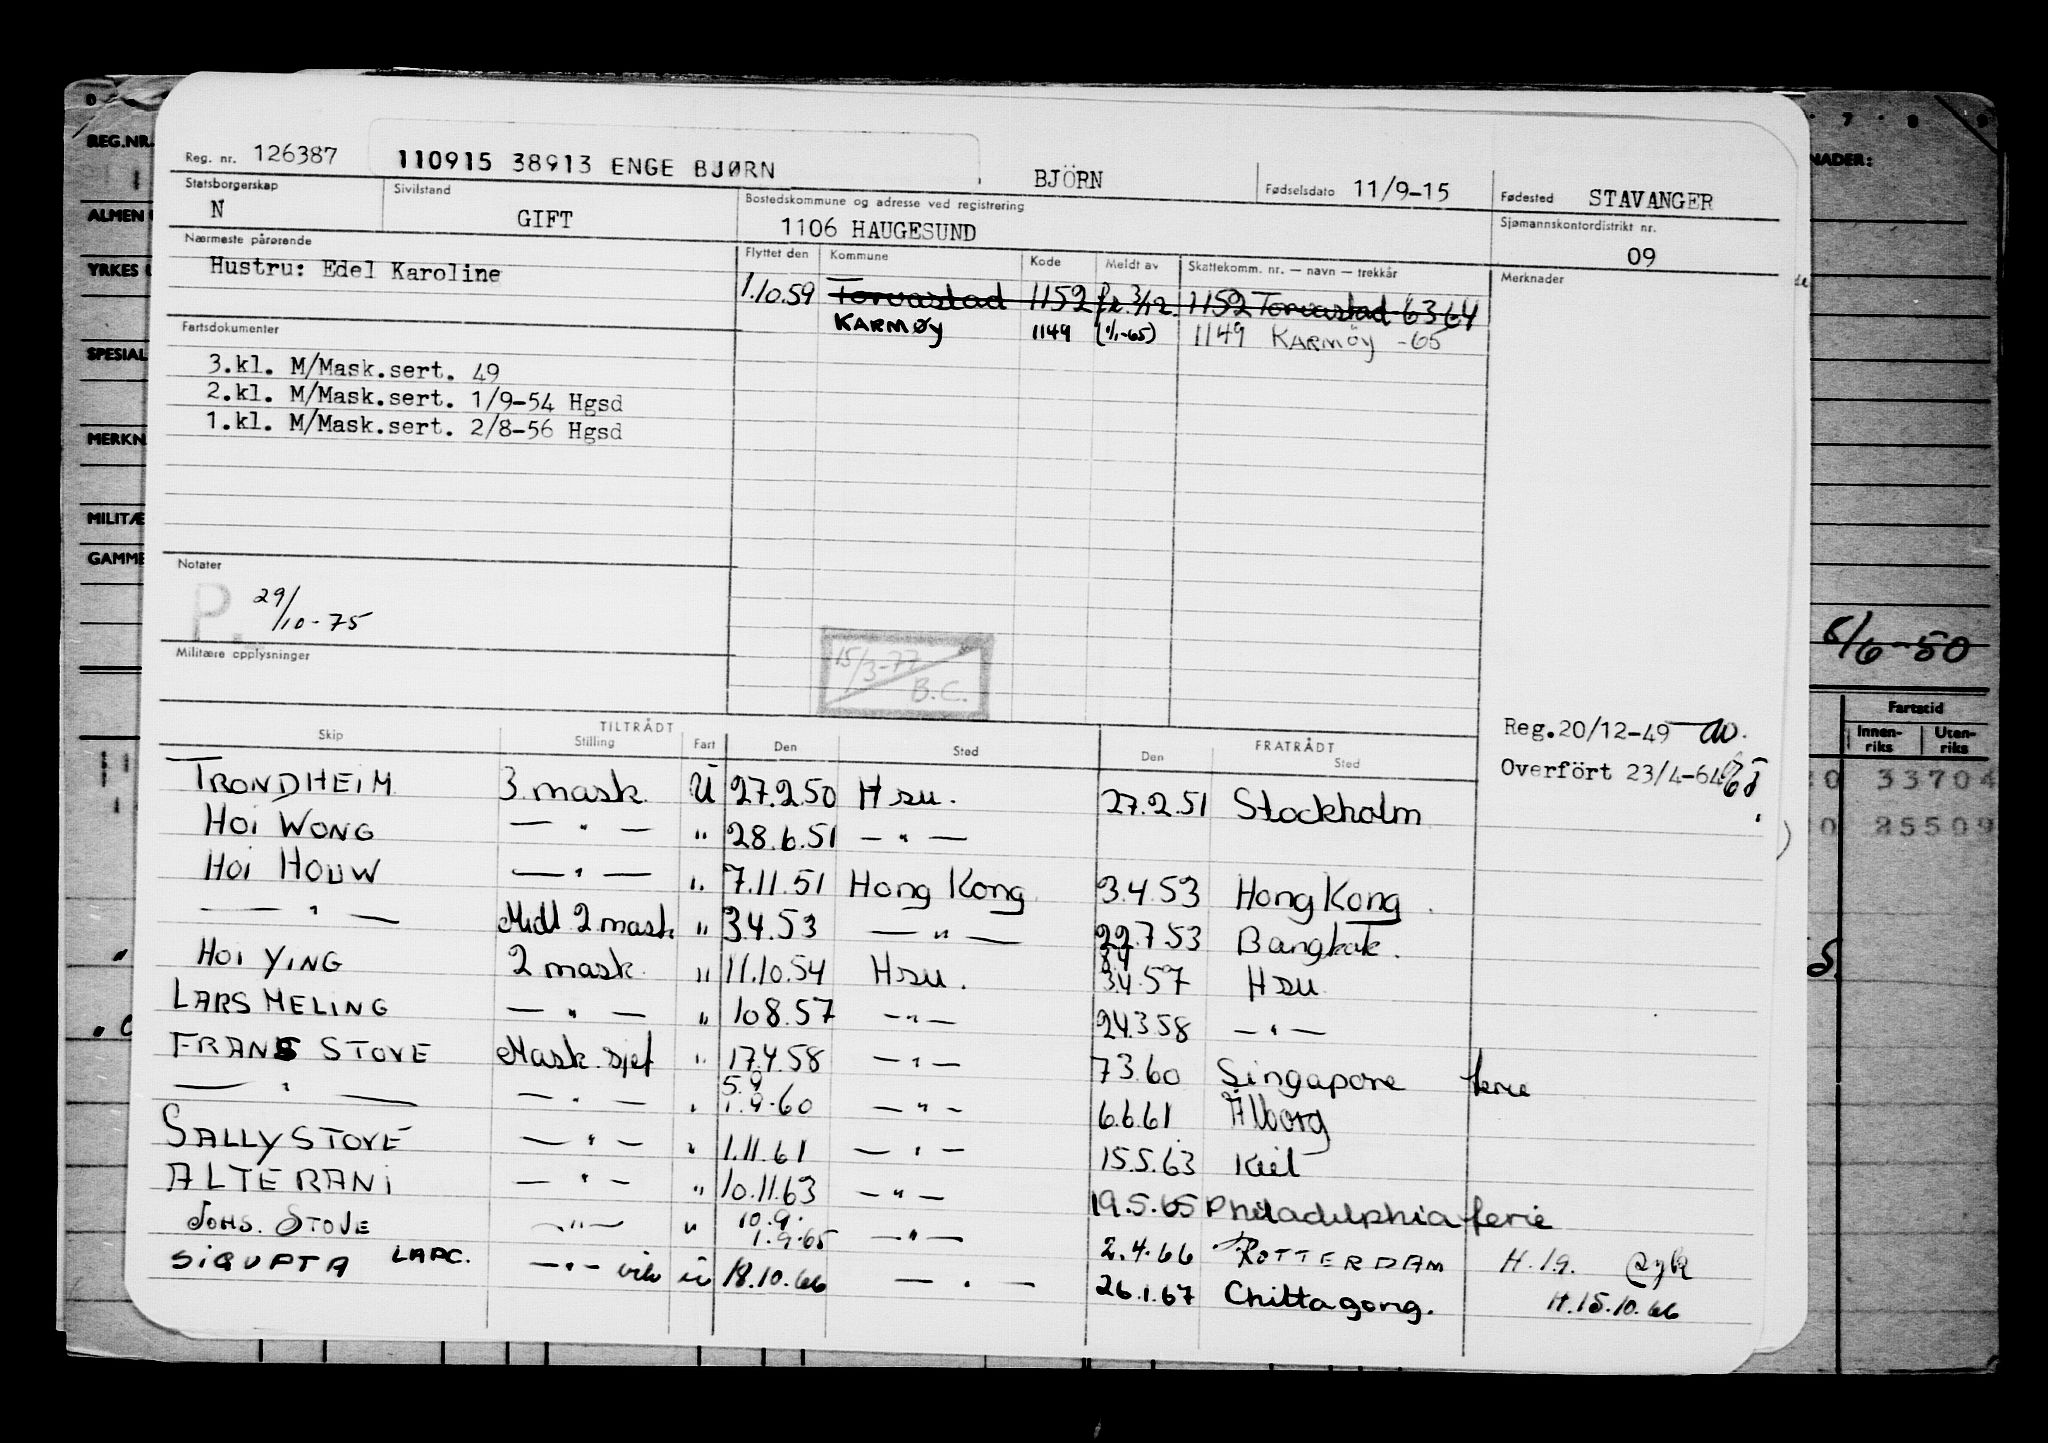 Reg. nr. 126387 110915 38913 ENGE BJØRN BJÖRN Fødselsdato 11/9-15 Fødested STAVANGER
Statsborgerskap N Sivilstand GIFT Bostedskommune og adresse ved registrering 1106 HAUGESUND Sjømannskontordistrikt nr. 09
Nærmeste pårørende Flyttet den Kommune Kode Meldt av Skattekomm. nr. — navn — trekkår Merknader
Hustru: Edel Karoline
1.10.59 Torvastad 1152 fr. 3/12. 1152 Torvastad 63 64
KARMØY 1149 (1/1-65) 1149 KARMØY -65
Fartsdokumenter
3.kl. M/Mask.sert. 49
2.kl. M/Mask.sert. 1/9-54 Hgsd
1.kl. M/Mask.sert. 2/8-56 Hgsd
Notater
P. 29/10-75
Militære opplysninger
15/3-77 B.C.
Reg.20/12-49
Overfört 23/4-64
TILTRÅDT FRATRÅDT
Skip Stilling Fart Den Sted Den Sted
TRONDHEIM 3 mask. U 27.2.50 Hsu. 27.2.51 Stockholm
HOI WONG — " — " 28.6.51 — " —
HOI HOUW — " — " 7.11.51 Hong Kong 3.4.53 Hong Kong.
— " — Midl 2 mask " 3.4.53 — " — 22.7.53 Bangkok.
HOI YING 2 mask. " 11.10.54 Hsu. 3.4.57 Hsu
LARS MELING — " — " 10.8.57 — " — 24.3.58 — " —
FRANS STOVE Mask. sjef " 17.4.58 — " — 7.3.60 Singapore ferie
— " — — " — " 5.9 1.9.60 — " — 6.6.61 Ålborg
SALLY STOVE — " — " 1.11.61 — " — 15.5.63 Kiel
ALTE RANI — " — " 10.11.63 — " — 19.5.65 Philadelphia ferie
JOHS. STOVE — " — " 10.9. 1.9.65 — " — 2.4.66 ROTTERDAM H. 1.9.
SIGUPTA LAPC. — " — vik u 18.10.66 — " — 26.1.67 Chittagong. H.15.10.66
REG.NR.
ALMEN
YRKES
SPESIAL
MERKN
MILITÆ
GAMME
7 8 9
NADER:
6/6-50
Fartstid
Innen-riks Uten-riks
33704
25509